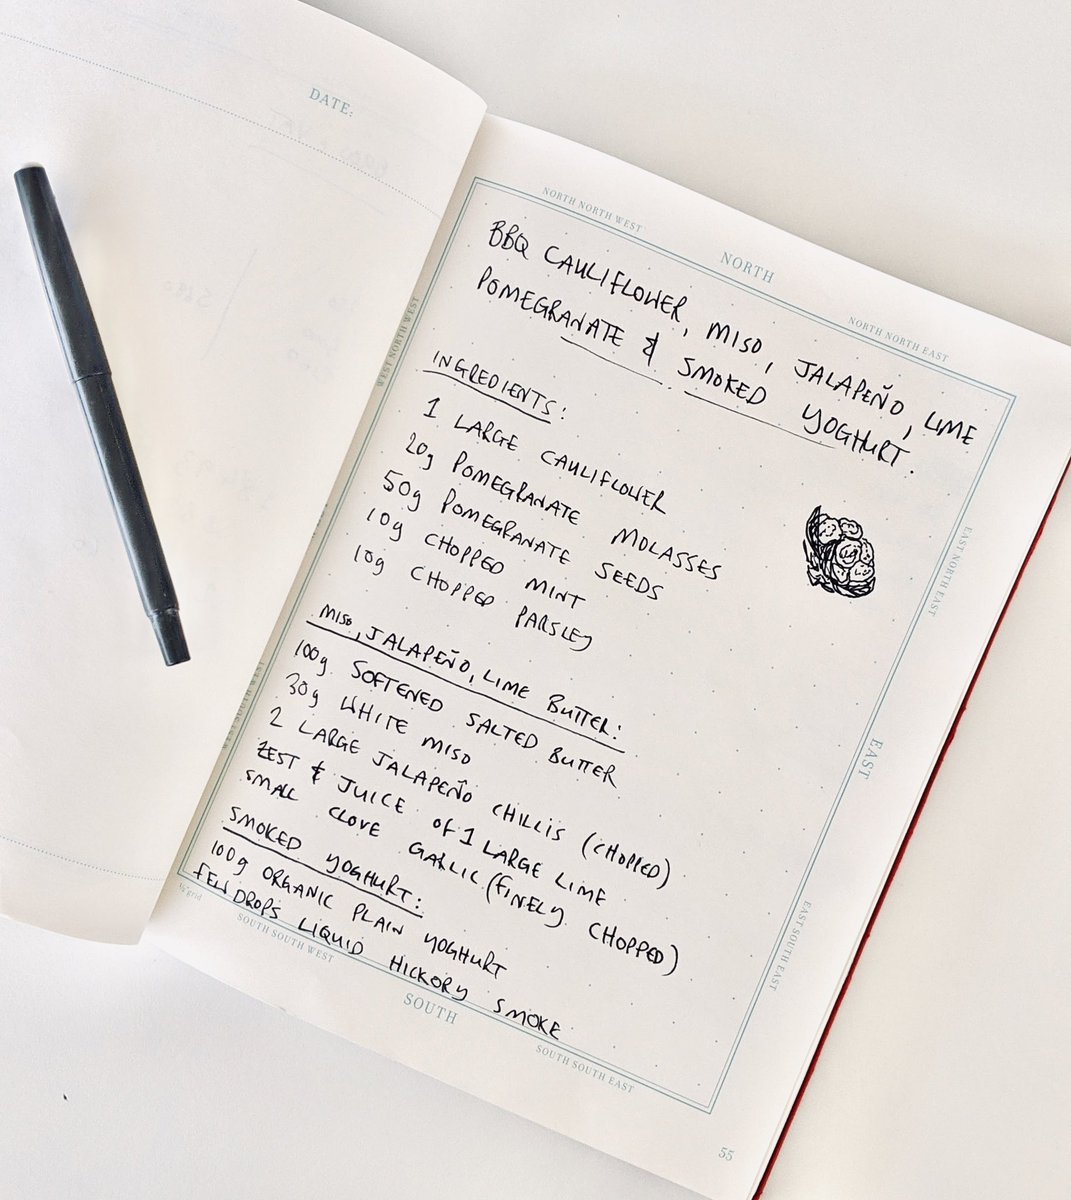 DATE:
NORTH NORTH WEST
NORTH
NORTH NORTH EAST
WEST NORTH WEST
BBQ CAULIFLOWER, MISO, JALAPEÑO, LIME
POMEGRANATE & SMOKED YOGHURT.
INGREDIENTS:
1 LARGE CAULIFLOWER
20g POMEGRANATE MOLASSES
50g POMEGRANATE SEEDS
10g CHOPPED MINT
10g CHOPPED PARSLEY
MISO, JALAPEÑO, LIME BUTTER:
100g SOFTENED SALTED BUTTER
30g WHITE MISO
2 LARGE JALAPEÑO CHILLIS (CHOPPED)
ZEST & JUICE OF 1 LARGE LIME
SMALL CLOVE GARLIC (FINELY CHOPPED)
SMOKED YOGHURT:
100g ORGANIC PLAIN YOGHURT
FEW DROPS LIQUID HICKORY SMOKE
EAST NORTH EAST
EAST
EAST SOUTH EAST
WEST SOUTH WEST
grid
SOUTH SOUTH WEST
SOUTH
SOUTH SOUTH EAST
55